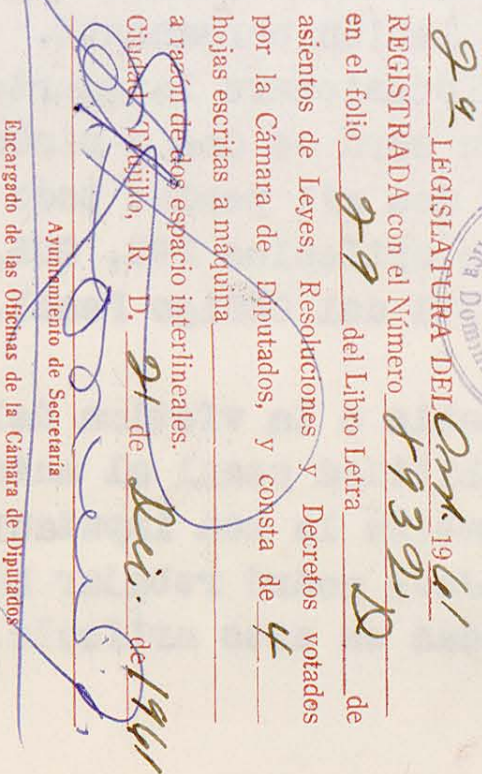 2ª LEGISLATURA DEL Ord. 1961
REGISTRADA con el Número 8932
en el folio 29 del Libro Letra D de
asientos de Leyes, Resoluciones y Decretos votados
por la Cámara de Diputados, y consta de 4
hojas escritas a máquina
a razón de dos espacio interlineales.
Ciudad Trujillo, R. D. 21 de Dic. de 1961
Ayuntamiento de Secretaria
Encargado de las Oficinas de la Cámara de Diputados